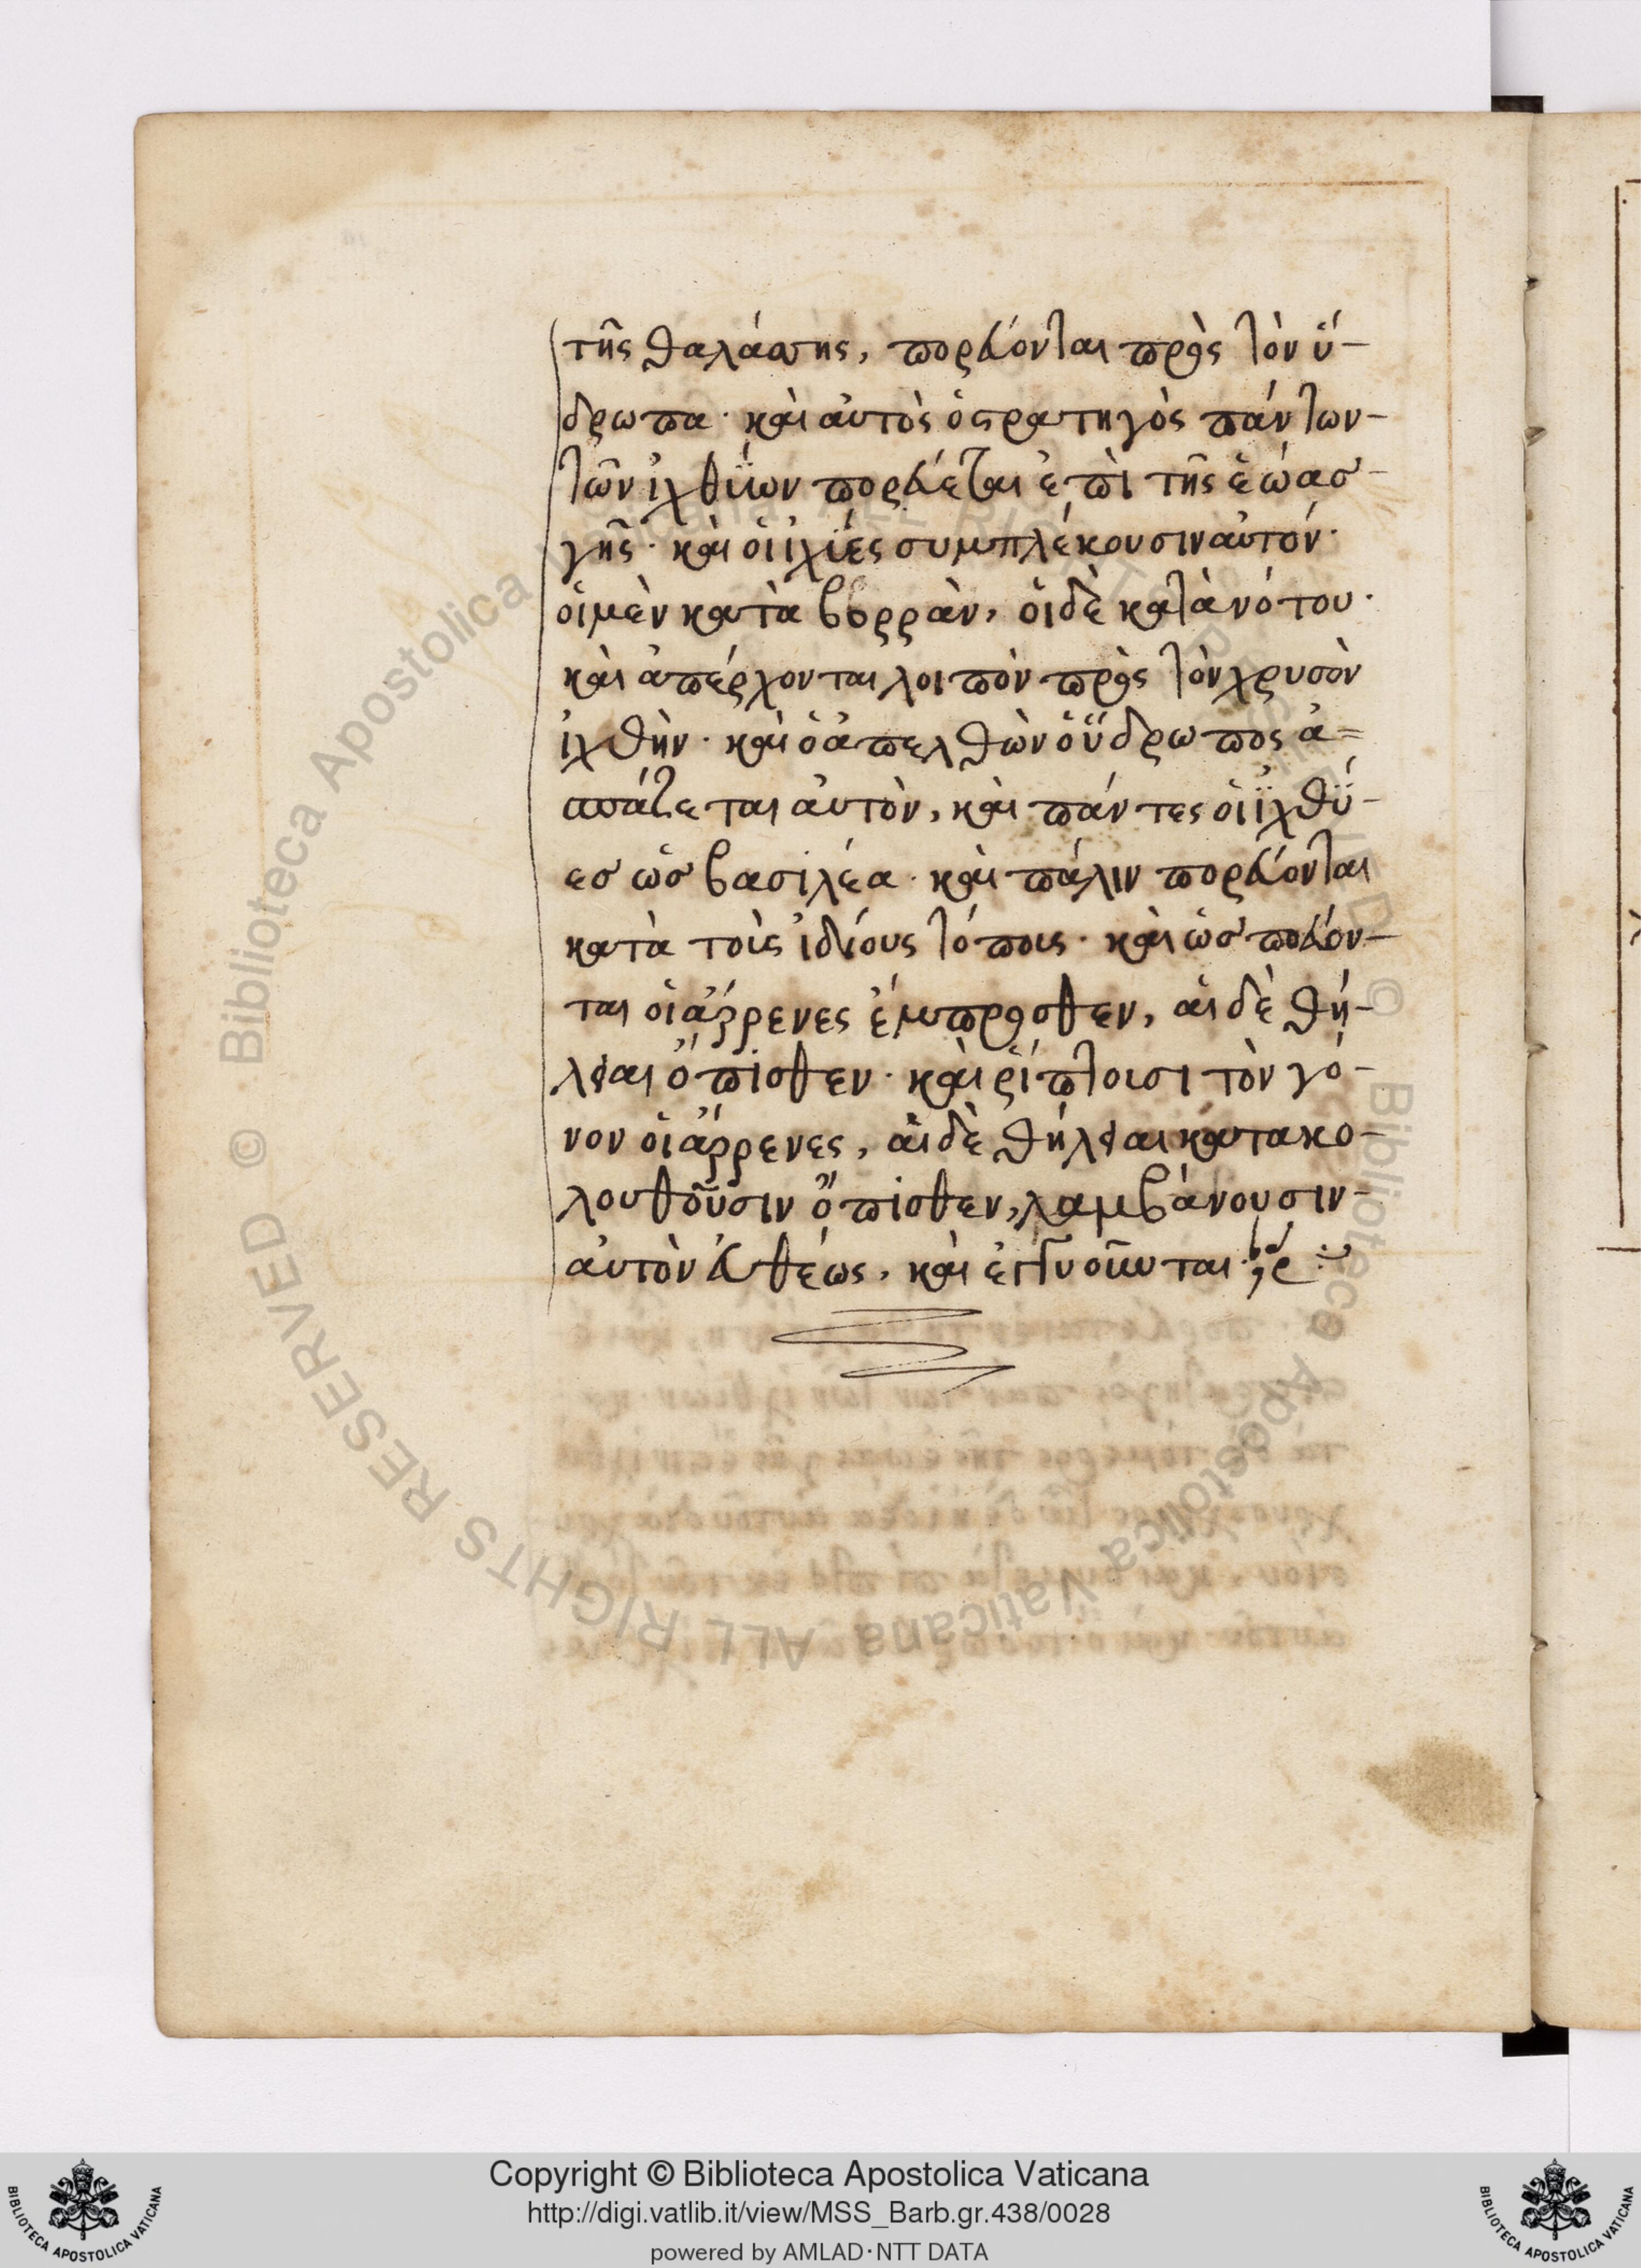 τῆς θαλάσσης, πορεύονται πρὸς τὸν ὕ-
δρωπα· καὶ αὐτὸς ὁ στρατηγὸς πάντων-
τῶν ἰχθύων πορεύεται ἐπὶ τῆς ἑώας-
γῆς· καὶ οἱ ἰχύες συμπλέκουσιν αὐτόν·
οἱ μὲν κατὰ βορρὰν, οἱ δὲ κατὰ νότου·
καὶ ἀπέρχονται λοιπὸν πρὸς τὸν χρυσὸν
ἰχθὴν· καὶ ὁ ἀπελθὼν ὁ ὕδρωπος ἀ=
σπάζεται αὐτὸν, καὶ πάντες οἱ ἰχθύ-
ες ὡς βασιλέα· καὶ πάλιν πορεύονται
κατὰ τοὺς ἰδίους τόπους· καὶ ὡς πορεύον-
ται οἱ ἄρρενες ἔμπροσθεν, αἱ δὲ θή-
λειαι ὄπισθεν· καὶ ῥίπτουσι τὸν γό-
νον οἱ ἄρρενες, αἱ δὲ θήλειαι κατακο-
λουθοῦσιν ὄπισθεν, λαμβάνουσιν-
αὐτὸν εὐθέως, καὶ ἐγγυοῦνται·
Copyright © Biblioteca Apostolica Vaticana
http://digi.vatlib.it/view/MSS_Barb.gr.438/0028
powered by AMLAD·NTT DATA
BIBLIOTECA APOSTOLICA VATICANA
BIBLIOTECA APOSTOLICA VATICANA
Biblioteca Apostolica Vaticana ALL RIGHTS RESERVED ©
Biblioteca Apostolica Vaticana ALL RIGHTS RESERVED ©